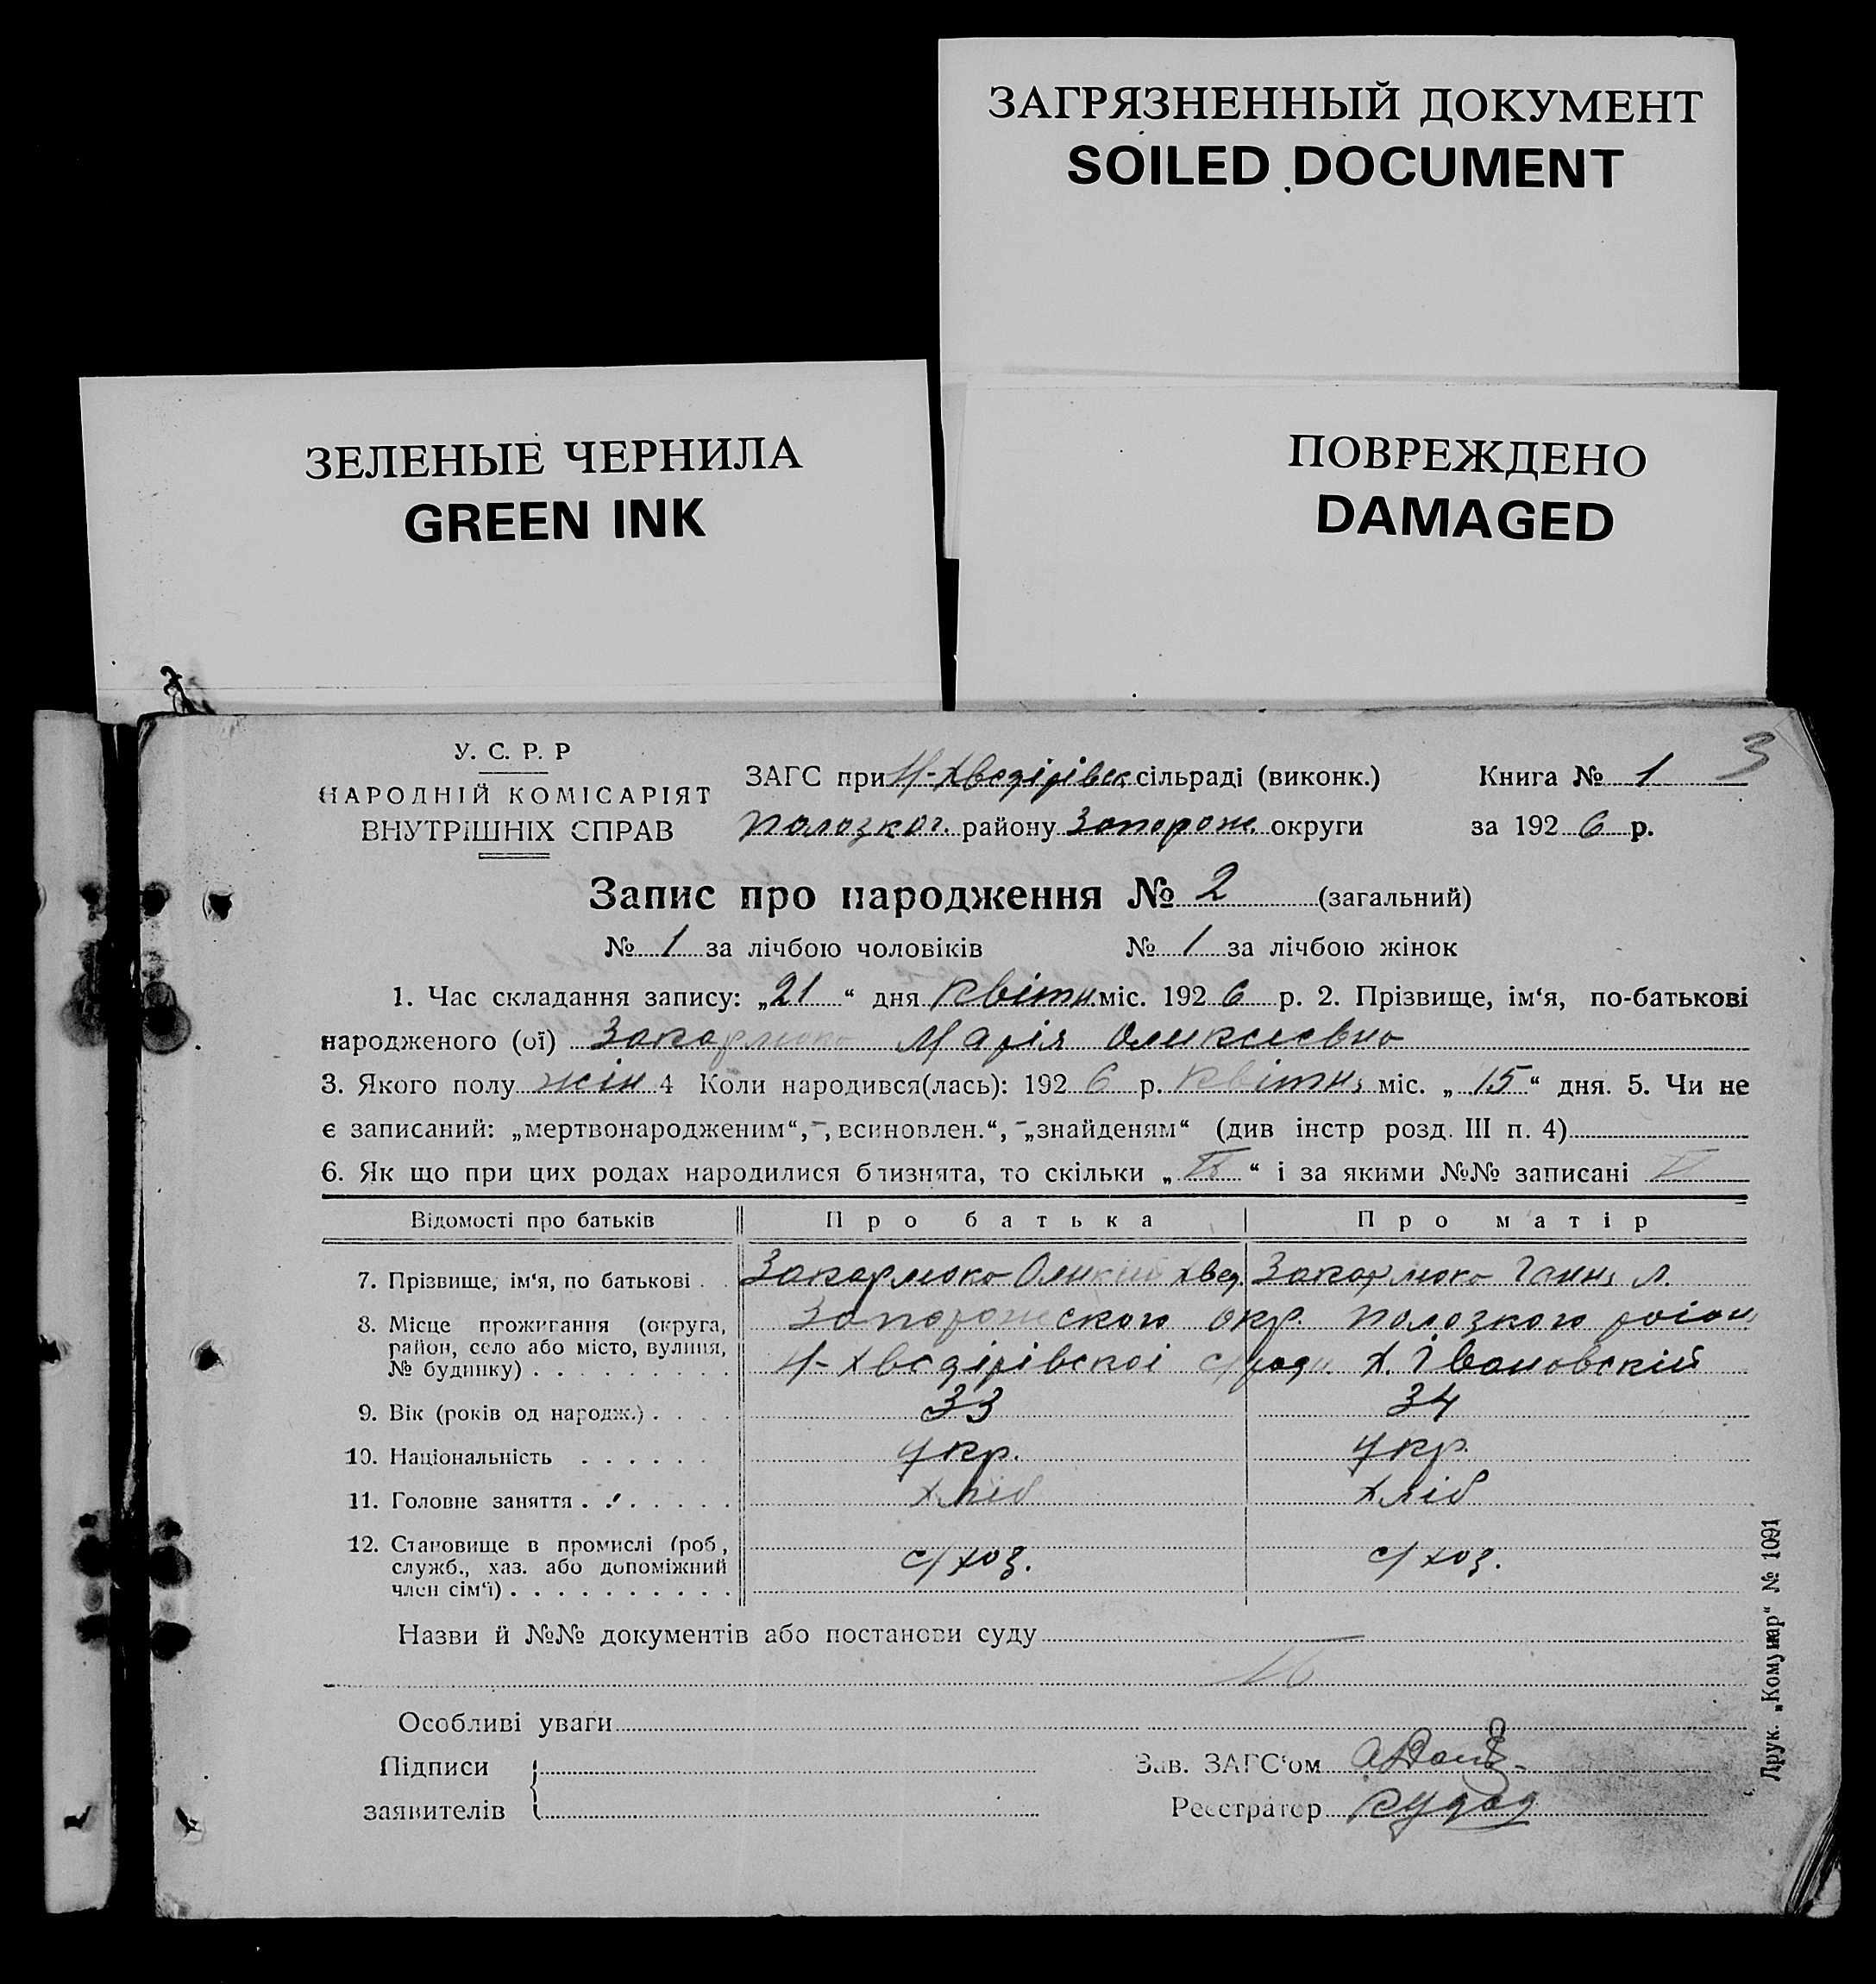 ЗАГРЯЗНЕННЫЙ ДОКУМЕНТ
SOILED DOCUMENT
ЗЕЛЕНЫЕ ЧЕРНИЛА
GREEN INK
ПОВРЕЖДЕНО
DAMAGED
3
У. С. Р. Р
НАРОДНІЙ КОМІСАРІЯТ
ВНУТРІШНІХ СПРАВ
ЗАГС при Н-Хведірівск. сільраді (виконк.)
Книга № 1
Пологког. району Запорож. округи
за 1926 р.
Запис про народження № 2 (загальний)
№ 1 за лічбою чоловіків № 1 за лічбою жінок
1. Час складання запису: „21“ дня Квітн. міс. 1926 р. 2. Прізвище, ім‘я, по-батькові
народженого (ої) Закарлюка Марія Олексієвна
3. Якого полу жін 4 Коли народився(лась): 1926 р. Квітня міс. „15“ дня. 5. Чи не
є записаний: „мертвонародженим“, -„всиновлен.“, -„знайденям“ (див інстр розд. III п. 4)
6. Як що при цих родах народилися близнята, то скільки „ “ і за якими №№ записані
Відомості про батьків Про батька Про матір
7. Прізвище, ім‘я, по батькові Закарлюка Хвед. Закарлюка Ганна Л.
8. Місце проживання (округа, район, село або місто, вулиця, № будинку) Запорожского окр. район
Н-Хведірівскоі с/ради Х. Івановский
9. Вік (років од народж.) 33 34
10. Національність Укр. Укр.
11. Головне заняття Хліб Хліб
12. Становище в промислі (роб., служб., хаз. або допоміжний член сім‘ї) с/хоз. с/хоз.
Назви й №№ документів або постанови суду
Особливі уваги
Підписи
заявителів
Зав. ЗАГС‘ом
Реєстратор
Друк. „Комунар“ № 1091